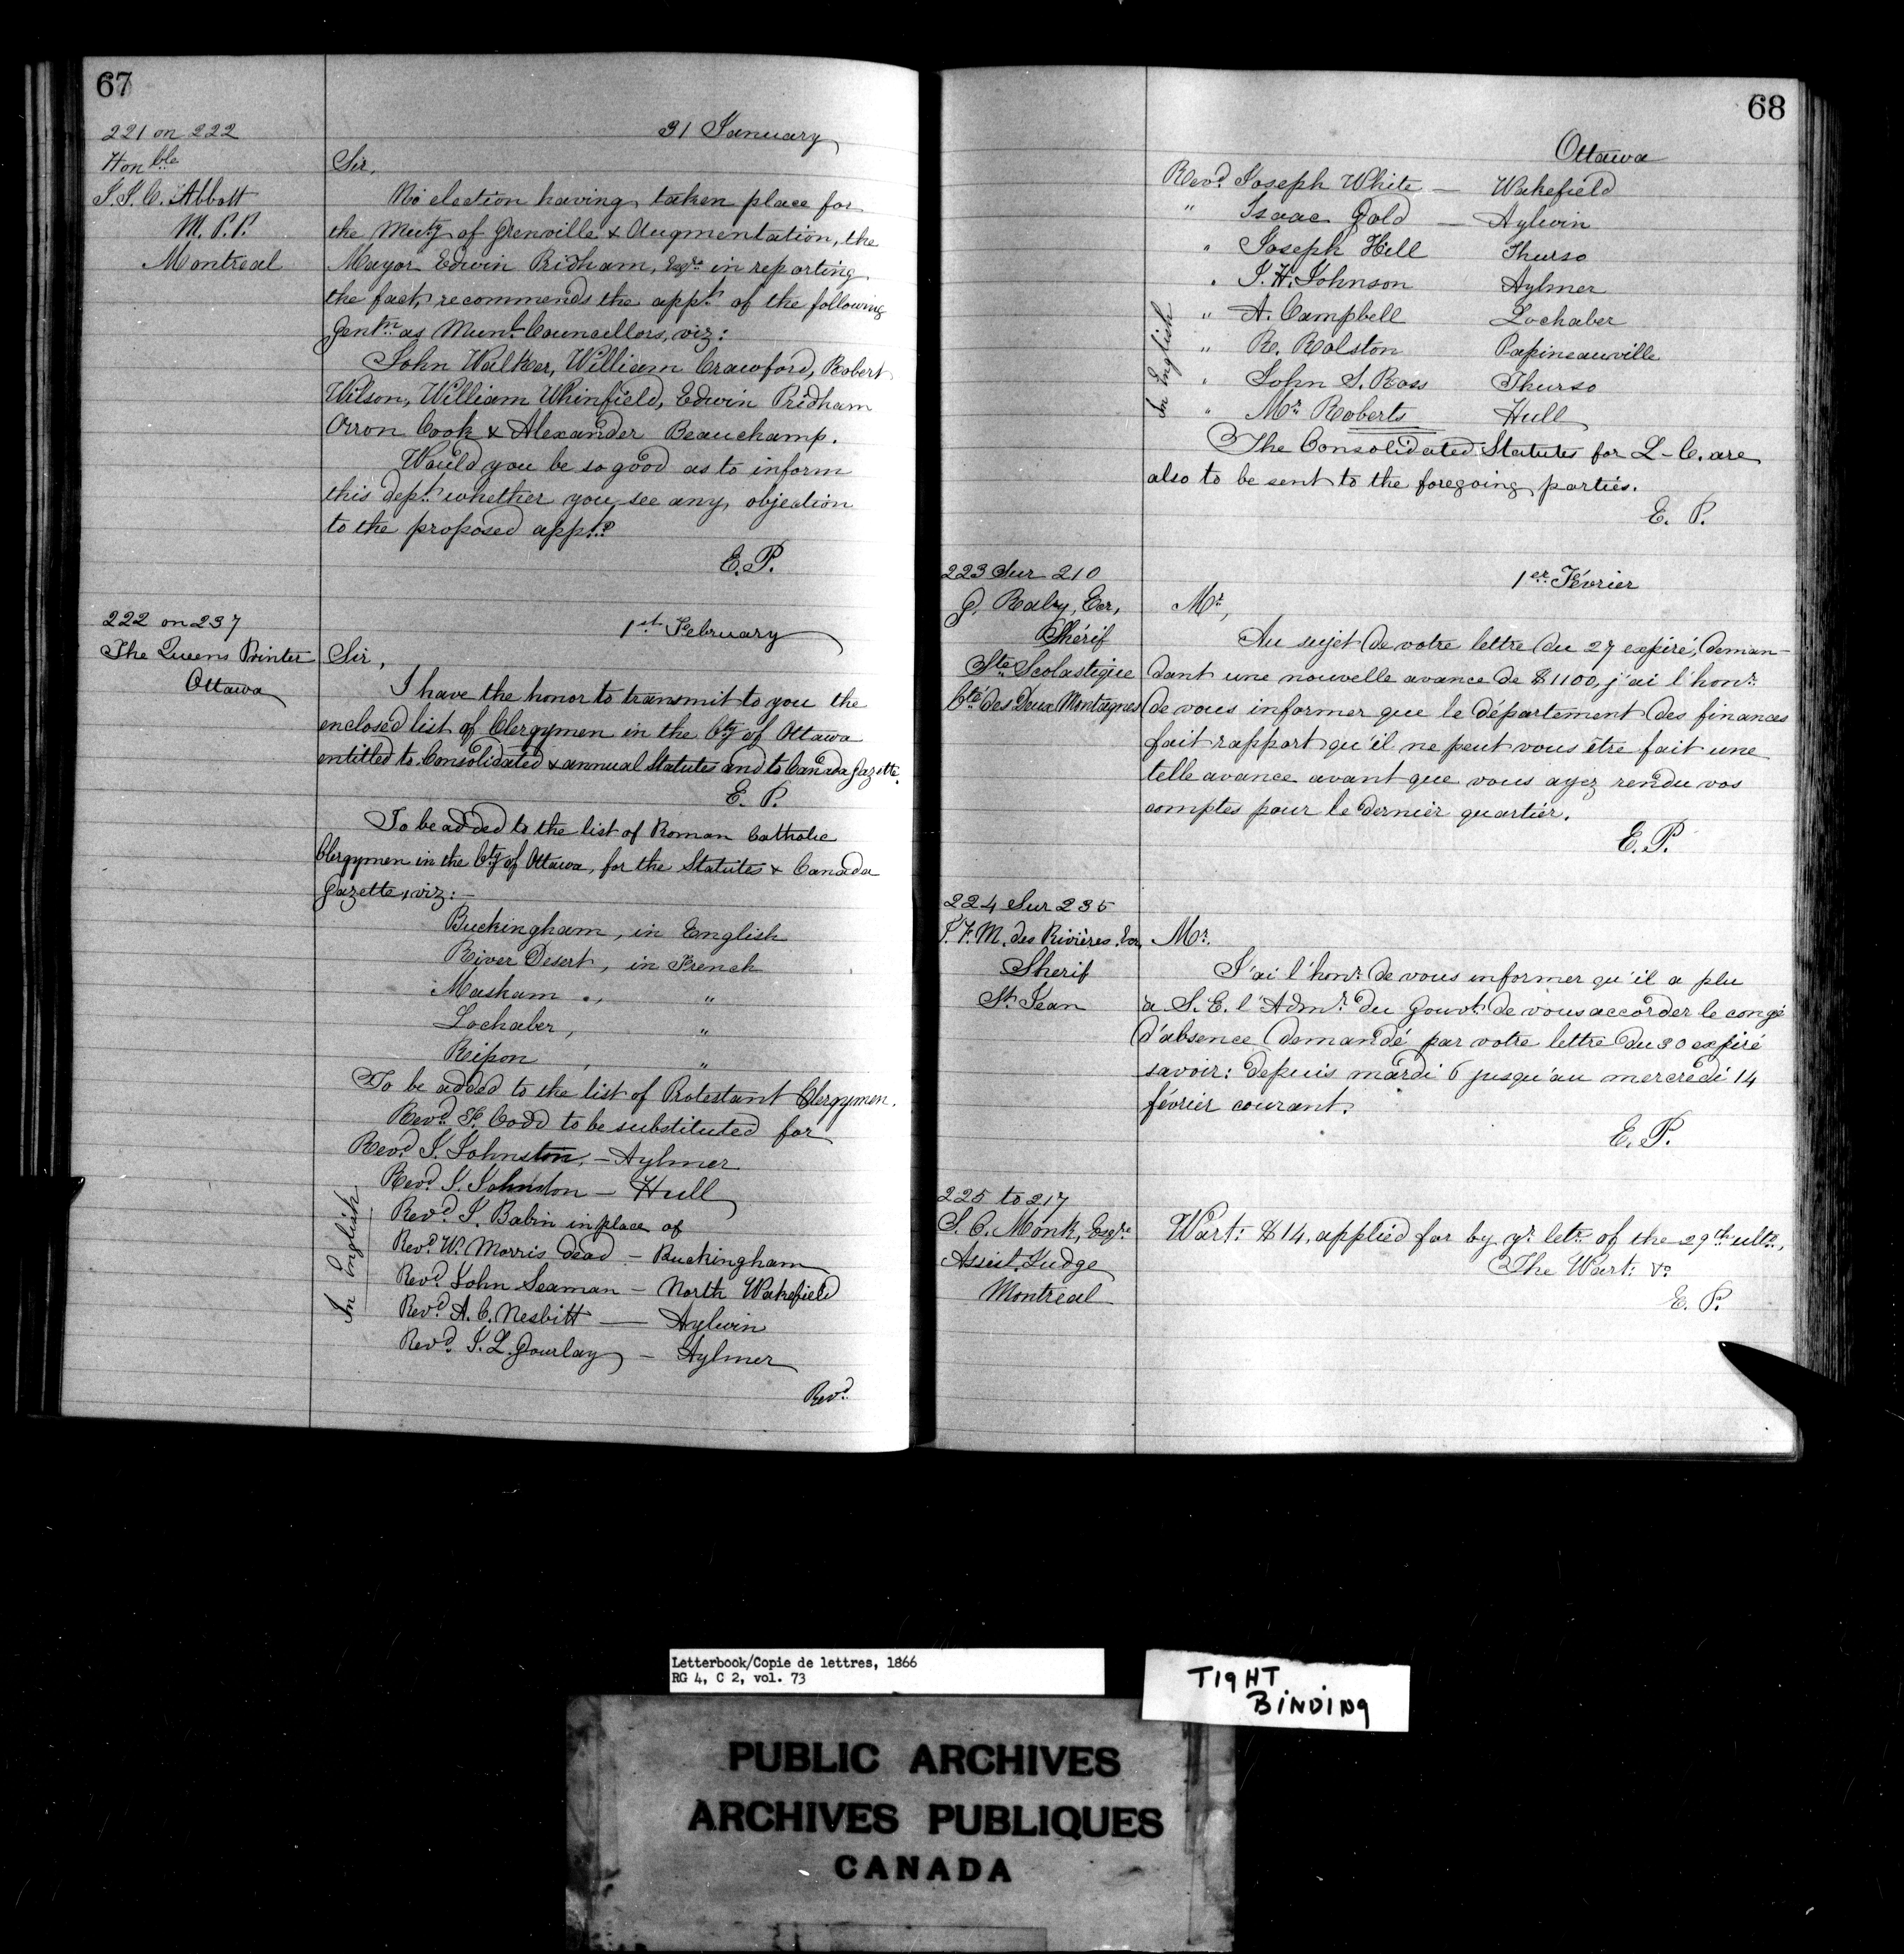 67
221 on 222
Honble
J. J. C. Abbott
M. P. P.
Montreal
31 January
Sir,
No election having taken place for
the Muty of Grenville & Augmentation, the
Mayor Edwin Pridham, Esqre in reporting
the fact, recommends the appt. of the following
Gentn as Munl Councellors, viz:
John Walker, William Crawford, Robert
Wilson, William Whinfield, Edwin Pridham
Orron Cook & Alexander Beauchamp.
Would you be so good as to inform
this dept. whether you see any objection
to the proposed appt.?
E. P.
222 on 237
The Queens Printer
Ottawa
1st February
Sir,
I have the honor to transmit to you the
enclosed list of Clergymen in the Cty of Ottawa
entitled to Consolidated & annual Statutes and to Canada Gazette.
E. P.
To be added to the list of Roman Catholic
Clergymen in the Cty of Ottawa, for the Statutes & Canada
Gazette, viz:-
Buckingham, in English
River Desert, in French
Masham ., "
Lochaber, "
Ripon , "
To be added to the list of Protestant Clergymen.
Revd. F. Codd to be substituted for
Revd J. Johnston, - Aylmer
Revd J. Johnston - Hull
Revd J. Babin in place of
Revd W. Morris dead - Buckingham
Revd John Seaman - North Wakefield
Revd. A. C. Nesbitt - Aylwin
Revd. J. L. Gourlay - Aylmer
In English
Revd.
68
Ottawa
Revd. Joseph White - Wakefield
" Isaac Gold - Aylwin
" Joseph Hill Thurso
" J. H. Johnson Aylmer
" A. Campbell Lochaber
" R. Rolston Papineauville
" John S. Ross Thurso
" Mr. Roberts Hull
In English
The Consolidated Statutes for L-C. are
also to be sent to the foregoing parties.
E. P.
223 Sur 210
G. Raby, Ecr,
Shérif
Ste Scolastique
Cté des Deux Montagnes
1er Février
Mr,
Au sujet de votre lettre du 27 expiré, deman-
dant une nouvelle avance de $1100, j'ai l'honr.
de vous informer que le département des finances
fait rapport qu'il ne peut vous être fait une
telle avance avant que vous ayez rendu vos
comptes pour le dernier quartier.
E. P.
224 Sur 235
P. F. M. des Rivières, Ecr,
Sherif
St Jean
Mr.
J'ai l'honr. de vous informer qu'il a plu
à S. E. l'Admr. du Gouvt. de vous accorder le congé
d'absence demandé par votre lettre du 30 expiré
savoir: depuis mardi 6 jusqu'au mercredi 14
février courant.
E. P.
225 to 217
S. C. Monk, Esqre
Assist. Judge
Montreal
Wart: $14, applied for by yr letr. of the 29th ulto.,
The Wart: &c
E. P.
Letterbook/Copie de lettres, 1866
RG 4, C 2, vol. 73
TIGHT
BINDING
PUBLIC ARCHIVES
ARCHIVES PUBLIQUES
CANADA